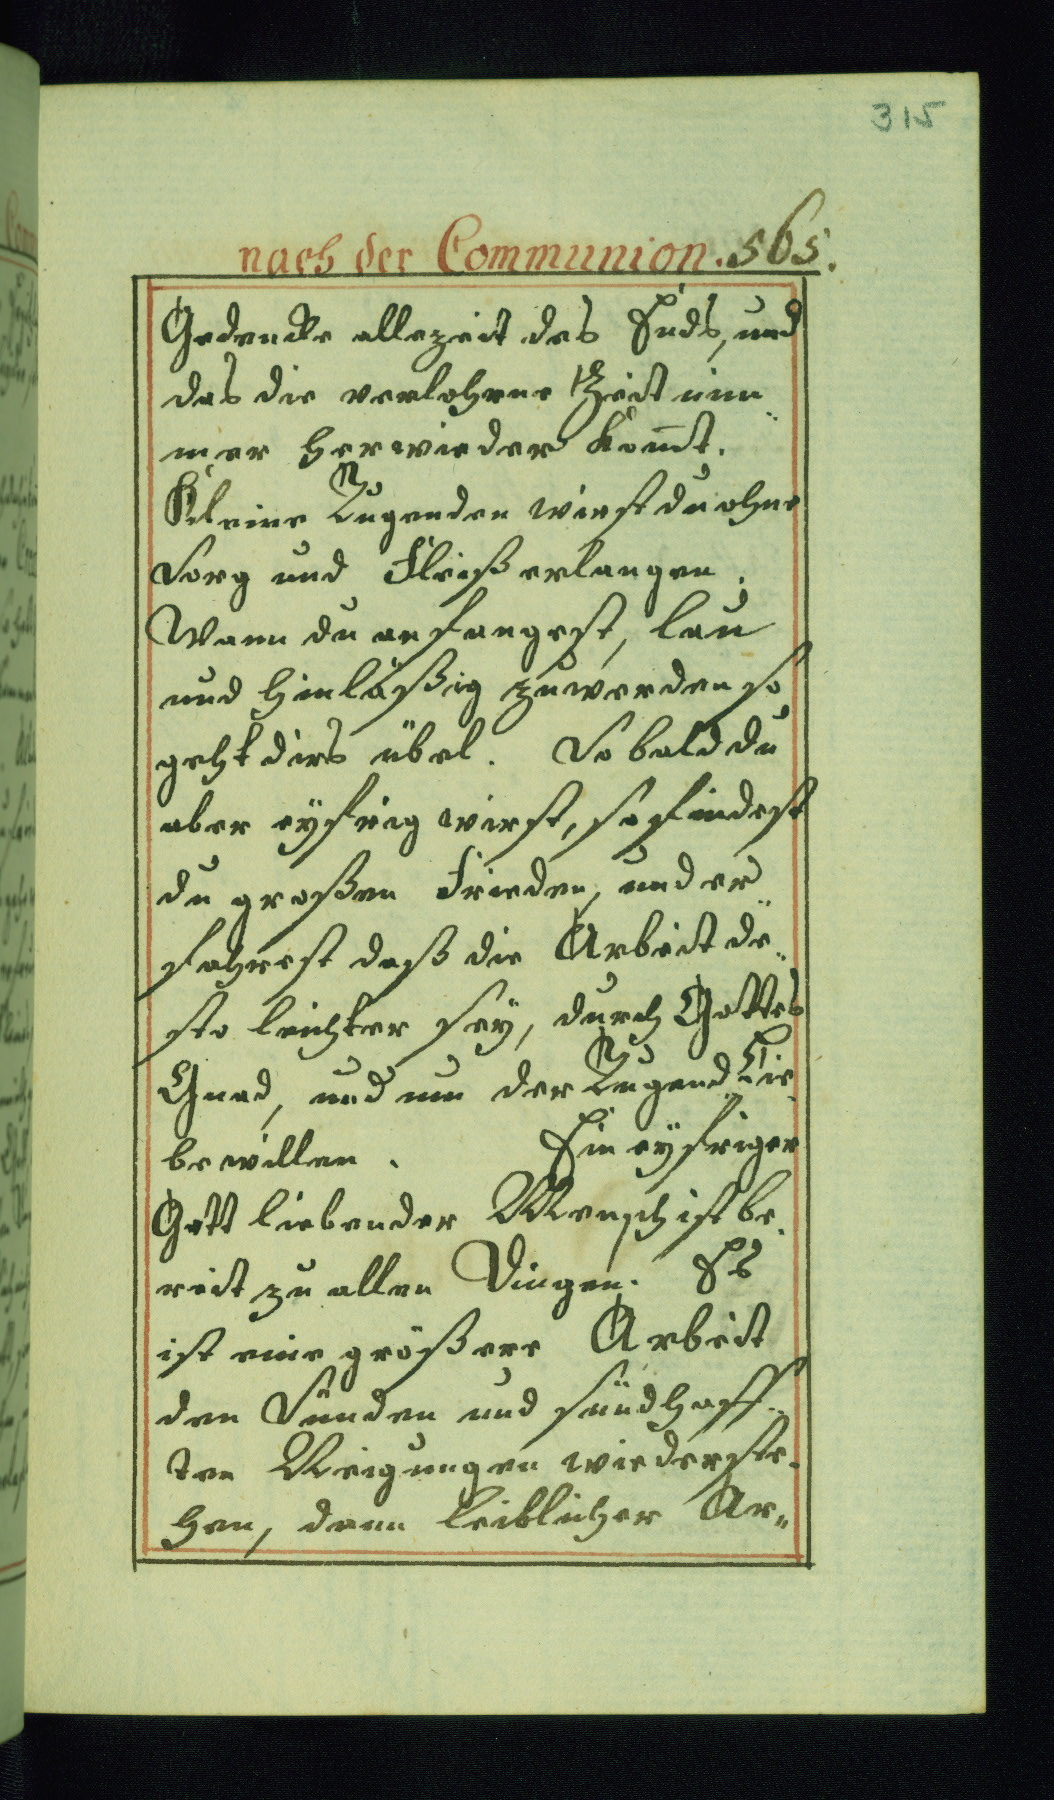 315
nach der Communion. 565.
Gedencke allezeit des Ends, und
das die verlohrne Zeit nim„
mer herwieder kom̄t.
Kleine Tugenden wirst du ohne
Sorg und Fleiß erlangen.
Wann du anfangest, lau
und hinläßig zuwerden so
geht dirs übel. So bald du
aber eyfrig wirst, so findest
du großen Frieden, und er„
fahrest daß die Arbeit de„
sto leichter seÿ, durch Gottes
Gnad, und um der Tugend Lie„
be willen. Ein eÿfriger
Gott liebender Mensch ist be„
reit zu allen Dingen. Es
ist eine größere Arbeit
den Sünden und sündhaff„
ten Neigungen wiederste„
hen, dann leiblicher Ar„